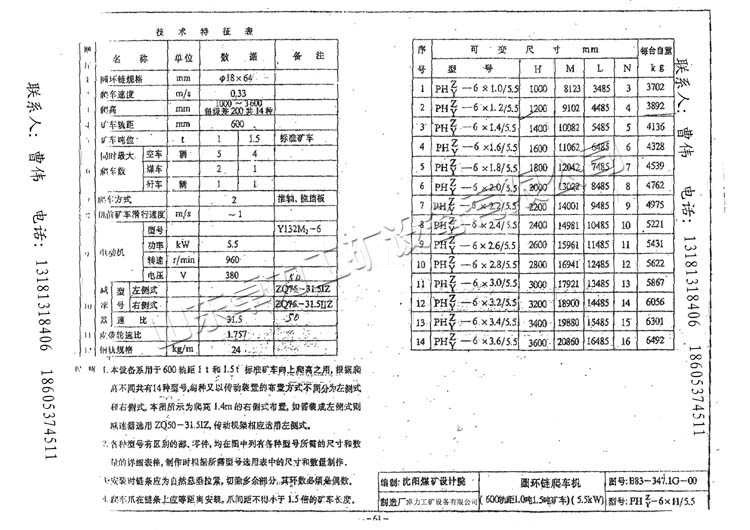 技术特征表
序号 名称 单位 数据 备注
圆环链规格 mm φ18×64
爬车速度 m/s 0.33
爬高 mm 1000～3600
级差200共14种
矿车轨距 mm 600
矿车吨位 t 1 1.5 标准矿车
同时最大爬车数 空车 辆 5 4
煤车 2 1
矸车 辆 1 1
爬车方式 2 推轴、推挡板
爬前矿车滑行速度 m/s ～1
电动机 型号 Y132M₂-6
功率 kW 5.5
转速 r/min 960
电压 V 380
减速器 型号 左侧式 ZQ76-31.5IZ
右侧式 ZQ76-31.5IIZ
速比 31.5 50
皮带轮速比 1.757
钢轨规格 kg/m 24
1.本设备系用于600轨距1t和1.5t标准矿车向上爬高之用,根据爬
高不同共有14种型号,每种又以传动装置的布置方式不同分为左侧式
和右侧式,本图所示为爬高1.4m的右侧式布置,如需装成左侧式则
减速器选用ZQ50-31.5IZ,传动机架相应选用左侧式。
2.各种型号有区别的部、零件,均在图中列有各种型号所需的尺寸和数
量的详细表件,制作时根据所需型号选用表中的尺寸和数量制作。
3.安装时链条应为自然悬垂拉紧,切除多余部分,其环数必须是偶数。
4.爬车爪在链条上应等距离安装,爪间距不得小于1.5倍的矿车长度。
序号 可变尺寸 mm 每台自重 kg
型号 H M L N
1 PH Z/Y -6×1.0/5.5 1000 8123 3485 3 3702
2 PH Z/Y -6×1.2/5.5 1200 9102 4485 4 3892
3 PH Z/Y -6×1.4/5.5 1400 10082 5485 5 4136
4 PH Z/Y -6×1.6/5.5 1600 11062 6485 6 4328
5 PH Z/Y -6×1.8/5.5 1800 12042 7485 7 4539
6 PH Z/Y -6×2.0/5.5 2000 13022 8485 8 4762
7 PH Z/Y -6×2.2/5.5 2200 14001 9485 9 4975
8 PH Z/Y -6×2.4/5.5 2400 14981 10485 10 5221
9 PH Z/Y -6×2.6/5.5 2600 15961 11485 11 5431
10 PH Z/Y -6×2.8/5.5 2800 16941 12485 12 5622
11 PH Z/Y -6×3.0/5.5 3000 17921 13485 13 5867
12 PH Z/Y -6×3.2/5.5 3200 18900 14485 14 6056
13 PH Z/Y -6×3.4/5.5 3400 19880 15485 15 6301
14 PH Z/Y -6×3.6/5.5 3600 20860 16485 16 6492
编制:沈阳煤矿设计院 圆环链爬车机 图号:B83-347.1G-00
(600轨距1.0吨1.5吨矿车)(5.5kW) 型号:PH Z/Y -6×H/5.5
-61-
联系人:曹伟 电话:13181318406 18605374511
联系人:曹伟 电话:13181318406 18605374511